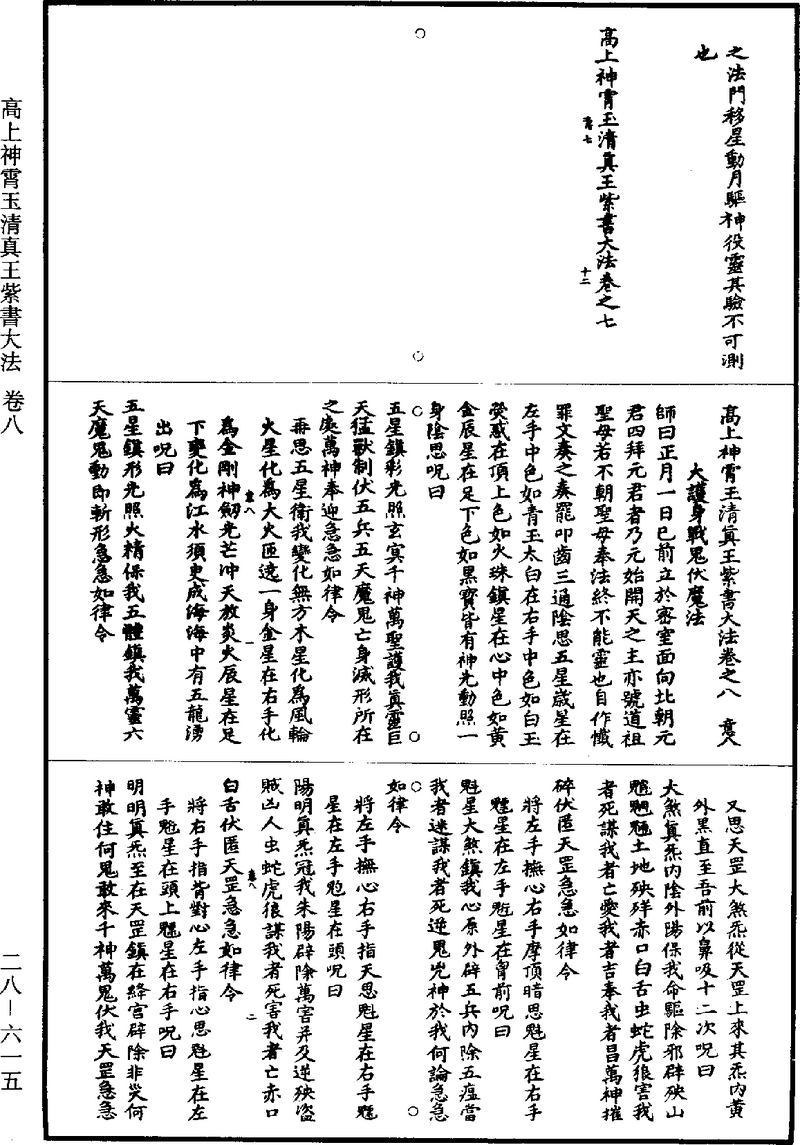 高上神霄玉清真王紫書大法 卷八
二八—六一五
之法門移星動月驅神役靈其驗不可測
也
高上神霄玉清真王紫書大法卷之七
十二
高上神霄玉清真王紫書大法卷之八 意八
大護身戰鬼伏魔法
師曰正月一日已前立於密室面向北朝元
君四拜元君者乃元始開天之主亦號道祖
聖母若不朝聖母奉法終不能靈也自作懺
罪文奏之奏罷叩齒三通陰思五星歲星在
左手中色如青玉太白在右手中色如白玉
熒惑在頂上色如火珠鎮星在心中色如黃
金辰星在足下色如黑寶皆有神光動照一
身陰思呪曰
五星鎮彩光照玄冥千神萬聖護我真靈巨
天猛獸制伏五兵五天魔鬼亡身滅形所在
之處萬神奉迎急急如律令
再思五星衛我變化無方木星化為風輪
火星化為大火匝遶一身金星在右手化
意八 一
為金剛神劒光芒沖天放炎火辰星在足
下變化為江水須更成海海中有五龍湧
出呪曰
五星鎮形光照火精保我五體鎮我萬靈六
天魔鬼動即斬形急急如律令
又思天罡大煞炁從天罡上來其炁內黃
外黑直至吾前以鼻吸十二次呪曰
大煞真炁內陰外陽保我命驅除邪辟殃山
魈魍魎土地殃殍赤口白舌虫蛇虎狼害我
者死謀我者亡愛我者吉奉我者昌萬神摧
碎伏匿天罡急急如律令
將左手撫心右手摩頂暗思魁星在右手
魓星在左手魁星在胷前呪曰
魁星大煞鎮我心原外辟五兵內除五瘟當
我者迷謀我者死逆鬼兇神於我何論急急
如律令
將左手撫心右手指天思魁星在右手魓
星在左手魁星在頭呪曰
陽明真炁冠我朱陽辟除萬害并及逆殃盜
賊凶人虫蛇虎狼謀我者死害我者亡赤口
意八 二
白舌伏匿天罡急急如律令
將右手指背對心左手指心思魁星在左
手魁星在頭上魓星在右手呪曰
明明真炁至在天罡鎮在絳宮辟除非災何
神敢住何鬼敢來千神萬鬼伏我天罡急急